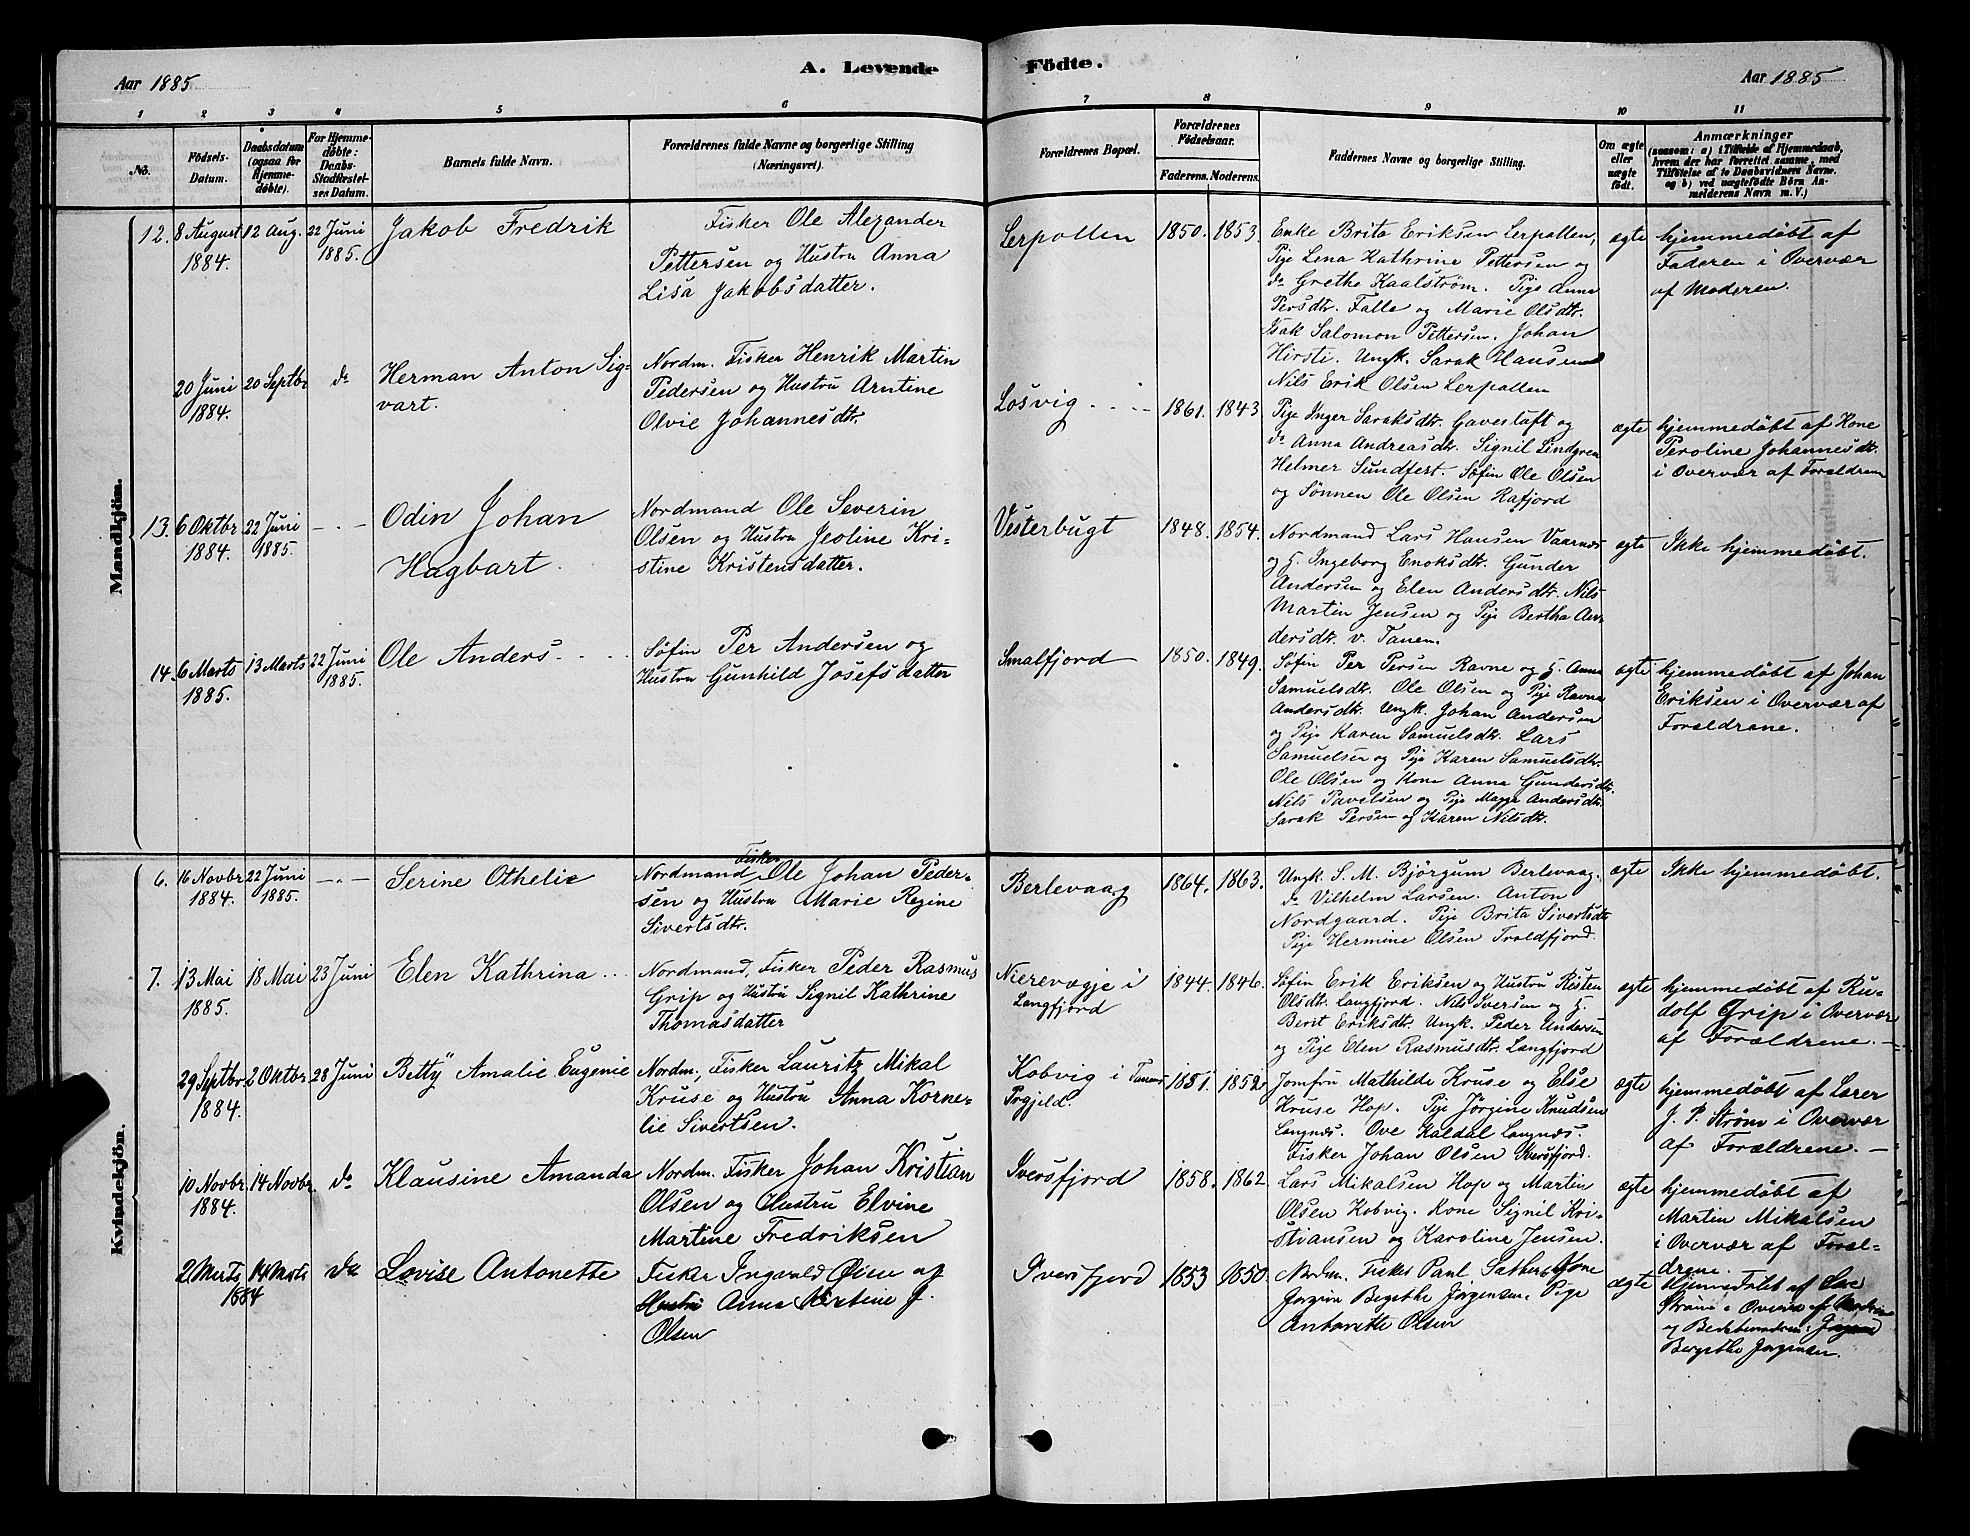 Aar 1885
A. Levende
Födte.
Aar 1885
1 2 3 4 5 6 7 8 9 10 11
No.
Födsels-
Datum.
Daabsdatum
(ogsaa for
Hjemme-
döbte).
For Hjemme-
döbte:
Daabs-
Stadfæstel-
ses Datum.
Barnets fulde Navn.
Forældrenes fulde Navne og borgerlige Stilling
(Næringsvei).
Forældrenes Bopæl.
Forældrenes
Födselsaar.
Faderens. Moderens.
Faddernes Navne og borgerlige Stilling.
Om ægte
eller
uægte
födt.
Anmærkninger
(saasom: a) i Tilfælde af Hjemmedaab,
hvem der har forrettet samme, med
Tilföielse af to Daabsvidners Navne.
og b) ved uægtefödte Börn An-
melderens Navn m. V.)
Mandkjön.
12. 8 August
1884.
12 Aug.
22 Juni
1885.
Jakob Fredrik
Fisker Ole Alexander
Pettersen og Hustru Anna
Lisa Jakobsdatter.
Lerpollen
1850. 1853.
Enke Brita Eriksen Lerpollen,
Pige Lena Kathrine Pettersen og
do Grethe Kaalström. Pige Anna
Persdtr. Falle og Marie Olsdtr.
Isak Salomon Pettersen. Johan
Hirsti. Ungk. Sarak Hansen
Nils Erik Olsen Lerpollen
ægte
hjemmedøbt af
Faderen i Overvær
af Moderen.
20 Juni
1884.
20 Septbr
do
Herman Anton Sig-
vart.
Nordm. Fisker Henrik Martin
Pedersen og Hustru Arntine
Olvie Johannesdtr.
Losvig
1861. 1843
Pige Inger Saraksdtr. Gavesluft og
do Anna Andreasdtr. Signil Lindgren
Helmer Sundfert. Søfin Ole Olsen
og Sønnen Ole Olsen Rafjord
ægte
hjemmedøbt af Kone
Peroline Johannesdt.
i Overvær af Forældrene
13. 6 Oktbr
1884.
22 Juni
1885.
Odin Johan
Hagbart.
Nordmand Ole Severin
Olsen og Hustru Jeoline Kri-
stine Kristensdatter.
Vesterbugt
1848. 1854.
Nordmand Lars Hansen Vaarnæs
og H. Ingeborg Enoksdtr. Gunder
Andersen og Elen Andersdtr. Nils
Martin Jensen og Pije Bertha An-
dersdtr. v. Tanen.
ægte
Ikke hjemmedøbt.
14. 6 Marts
1885.
13 Marts
22 Juni
1885.
Ole Anders
Søfin Per Andersen og
Hustru Gunhild Josefsdatter
Smalfjord
1850. 1849.
Søfin Per Persen Ravne og H. Anna
Samuelsdt. Ole Olsen og Pije Ravna
Andersdtr. Ungk. Johan Andersen
og Pije Karen Samuelsdtr. Lars
Samuelsen og Pije Karen Samuelsdtr.
Ole Olsen og Kone Anna Gundersdtr.
Nils Pavelsen og Pije Magga Andersdtr.
Sarak Persen og Karen Nilsdtr.
ægte
hjemmedøbt af Johan
Eriksen i Overvær af
Forældrene.
Kvindekjön.
6. 16 Novbr
1884.
22 Juni
1885.
Serine Othelie
Fisker
Nordmand Ole Johan Peder-
sen og Hustru Marie Regine
Sivertsdtr.
Berlevaag
1864. 1863.
Ungk. S. M. Bjørgum Berlevaag.
do Vilhelm Larsen. Anton
Nordgaard. Pije Brita Sivertsdtr
Pije Hermine Olsen Troldfjord.
ægte
Ikke hjemmedøbt.
7. 13 Mai
1885.
18 Mai
23 Juni
Elen Kathrina
Nordmand, Fisker Peder Rasmus
Grip og Hustru Signil Kathrine
Thomasdatter
Nierevægje i
Langfjord
1844. 1846.
Søfin Erik Eriksen og Hustru Risten
Olsdtr. Langfjord. Nils Iversen og H.
Berit Eriksdtr. Ungk. Peder Andersen
og Pije Elen Rasmusdtr. Langfjord
ægte
hjemmedøbt af Ru-
dolf Grip i Overvær
af Forældrene.
29 Septbr
1884.
2 Oktbr
28 Juni
Betty Amalie Eugenie
Nordm., Fisker Lauritz Mikal
Kruse og Hustru Anna Korne-
lie Sivertsen.
Kobvig i Tanens
Prgjeld.
1851. 1852.
Jomfru Mathilde Kruse og Else
Kruse Hop. Pije Jørgine Knudsen
Langnæs. Ove Kaldal Langnæs.
Fisker Johan Olsen Iversfjord.
ægte
hjemmedøbt af Lærer
J. P. Strøm i Overvær
af Forældrene.
10 Novbr
1884.
14 Novbr.
do
Klausine Amanda
Nordm. Fisker Johan Kristian
Olsen og Hustru Elvine
Martine Fredriksen
Iversfjord
1858. 1862.
Lars Mikalsen Hop og Martin
Olsen Kobvig. Kone Signil Kri-
stiansen og Karoline Jensen.
ægte
hjemmedøbt af
Martin Mikalsen
i Overvær af Foræl-
drene.
2 Marts
1884
14 Marts
do
Lovise Antonette
Fisker Ingvald Øien og
Hustru Anna Martine J.
Olsen
Iversfjord
1853 1850.
Nordm. Fisker Paul Sather, Kone
Jørgine Bergithe Jørgensen, Pige
Antonette Olsen
ægte
Hjemmedøbt af
Strøm i Overvær af
og
Bergithe Jørgensen.